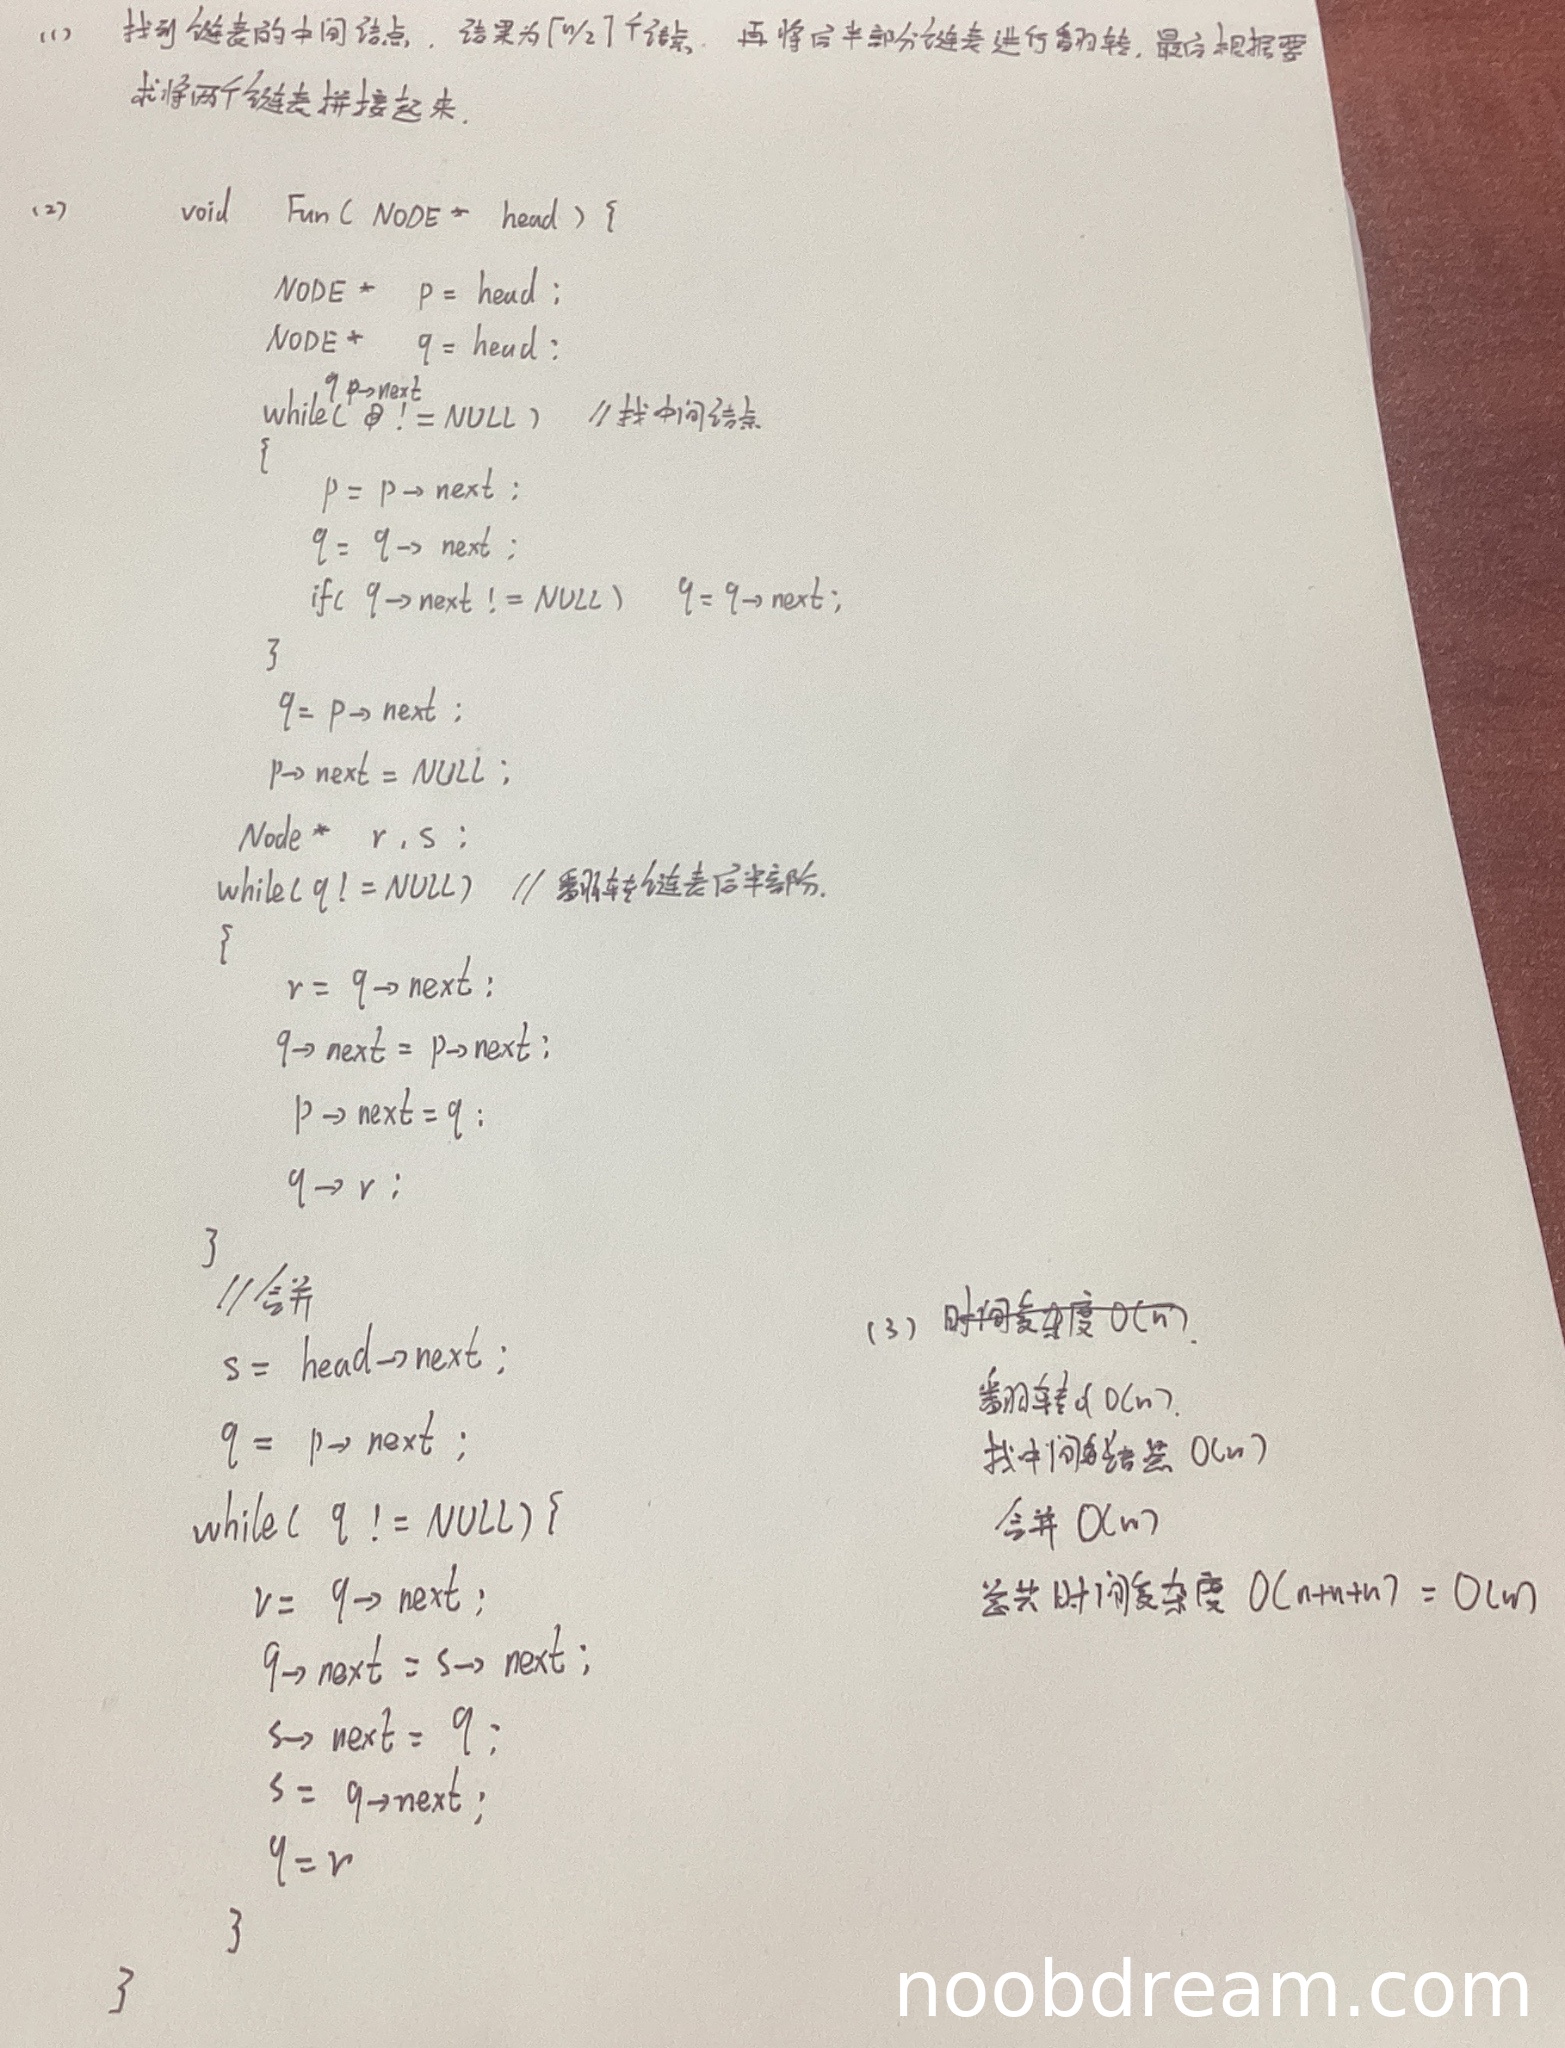 (1) 找到链表的中间结点, 结果为⌈n/2⌉个结点. 再将后半部分链表进行翻转, 最后根据要
求将两个链表拼接起来.
(2) void Fun( NODE* head ) {
NODE* p = head ;
NODE* q = head ;
q p→next
while( != NULL ) //找中间结点
{
p = p→next ;
q = q→next ;
if( q→next != NULL ) q = q→next ;
}
q = p→next ;
p→next = NULL ;
Node* r , s ;
while( q != NULL ) // 翻转链表后半部分.
{
r = q→next ;
q→next = p→next ;
p→next = q ;
q→r ;
}
//合并
s = head→next ;
q = p→next ;
while( q != NULL ) {
r = q→next ;
q→next = s→next ;
s→next = q ;
s = q→next ;
q = r
}
}
(3) 时间复杂度 O(n).
翻转 O(n).
找中间结点 O(n)
合并 O(n)
总共时间复杂度 O(n+n+n) = O(n)
noobdream.com